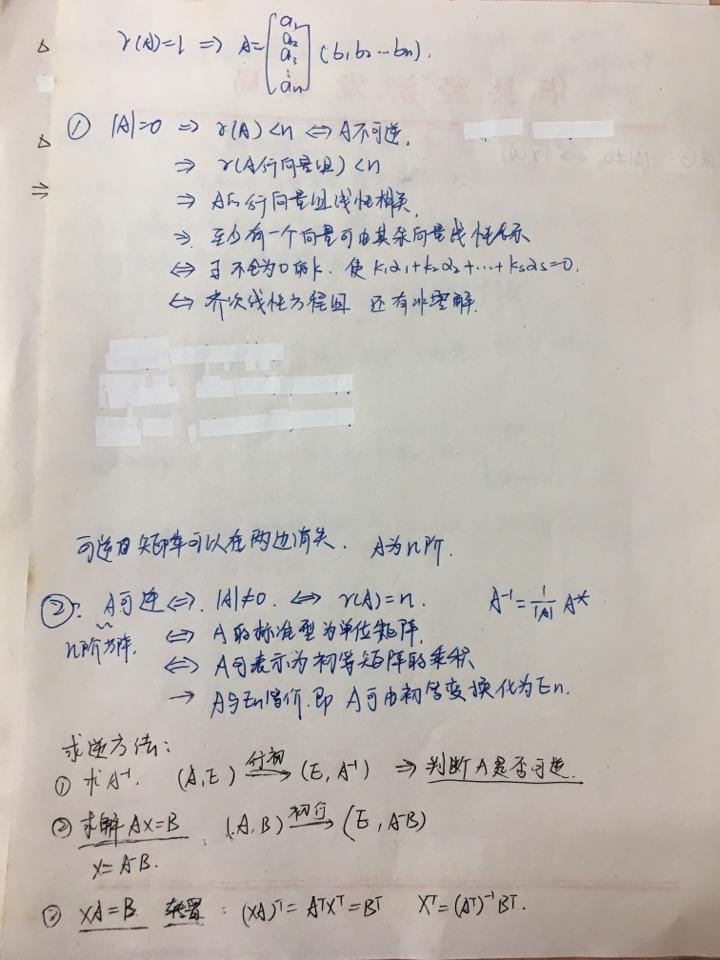 r(A)=1 ⇒ A=[a₁ a₂ a₃ ⋮ aₙ] (b₁ b₂ … bₙ).
① |A|=0 ⇒ r(A)<n ⇔ A不可逆.
⇒ r(A行向量组)<n
⇒ A的行向量组线性相关.
⇒ 至少有一个向量可由其余向量线性表示
⇔ ∃不全为0的k. 使k₁α₁+k₂α₂+…+ksαs=0.
⇔ 齐次线性方程组 还有非零解.
可逆的矩阵可以在两边消失. A为n阶.
②: A可逆⇔ |A|≠0. ⇔ r(A)=n. A⁻¹=1/|A| A*
n阶方阵. ⇔ A的标准型为单位矩阵.
⇔ A可表示为初等矩阵的乘积
→ A与En等价.即 A可由初等变换化为En.
求逆方法:
① 求A⁻¹. (A,E) 行初→ (E,A⁻¹) ⇒ 判断A是否可逆.
② 求解AX=B : (A,B) 初行→ (E,A⁻B)
X=A⁻B.
③ XA=B 转置: (XA)ᵀ=AᵀXᵀ=Bᵀ Xᵀ=(Aᵀ)⁻¹Bᵀ.